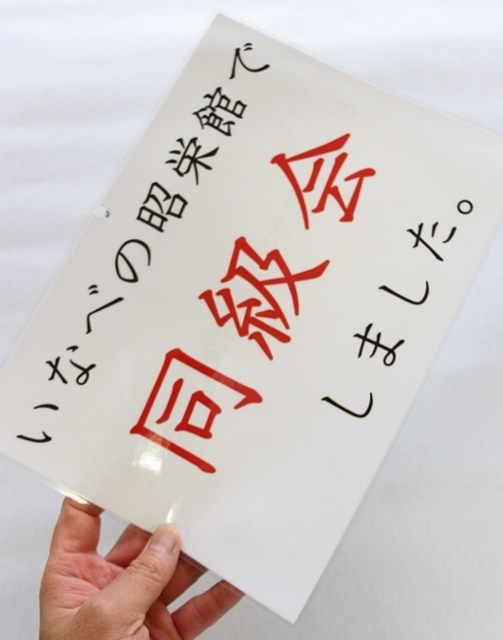 いなべの昭栄館で
同級会
しました。